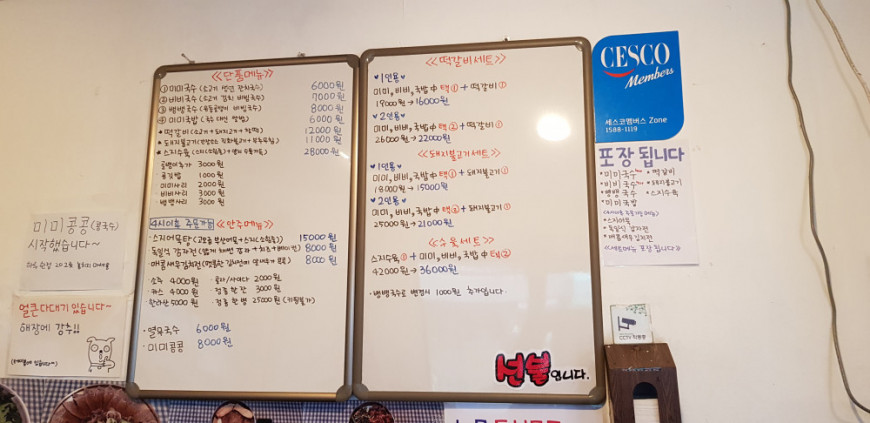 <<단품메뉴>>
① 미미국수 (소고기 얹은 잔치국수) 6000원
② 비비국수 (소고기 김치 비빔국수) 7000원
③ 뱅뱅국수 8000원
④ 미미국밥 6000원
* 떡갈비 (소고기+돼지고기+ 12000원
* 돼지불고기 11000원
* 스지수육 28000원
3000원
공기밥 1000원
미미사리 2000원
비비사리 3000원
뱅뱅사리 3000원
4시이후 주문가능 <<안주메뉴>>
· 스지어묵탕 15000원
독일식 감자전 (얇게 채썬 감자 + 치즈 + 베이컨) 8000원
· 매콤새우김치전 8000원
· 소주 4000원 · 콜라/사이다 2000원
· 카스 4000원 3000원
· 한라산 5000원 25000원
· 열무국수 6000원
· 미미콩콩 8000원
<<떡갈비세트>>
♥1인용♥
미미, 비비, 국밥 中 택① + 떡갈비①
→ 16000원
♥2인용♥
미미, 비비, 국밥 中 택② + 떡갈비①
26000원 → 22000원
<<돼지불고기세트>>
♥1인용♥
미미, 비비, 국밥 中 택① + 돼지불고기①
18000원 → 15000원
♥2인용♥
미미, 비비, 국밥 中 택② + 돼지불고기①
25000원 → 21000원
<<수육세트>>
스지수육① + 미미, 비비, 국밥 中 택②
42000원 → 36000원
· 뱅뱅국수로 변경시 1000원 추가됩니다.
선불입니다.
CESCO
Members
세스코멤버스 Zone
1588-1119
포장 됩니다
· 미미국수 · 떡갈비
· 비비국수 · 돼지불고기
· 뱅뱅국수 · 스지수육
· 미미국밥
· 스지어묵
· 독일식 감자전
· 매콤새우김치전
<<세트메뉴 포장 됩니다>>
미미콩콩 (콩국수)
시작했습니다~
얼큰다대기 있습니다~
해장에 강추!!
CCTV 작동중